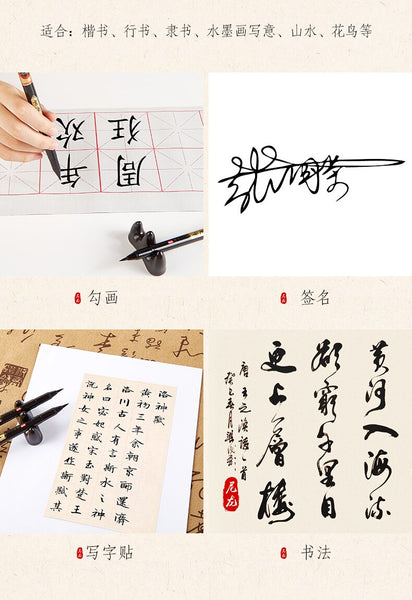 适合：楷书、行书、隶书、水墨画写意、山水、花鸟等
周年
狂欢
勾画
签名
洛神賦
黃初三年余朝京師還濟
洛川古人有言斯水之神
名曰宓妃感宋玉對楚王
說神女之事遂作斯賦其
黄河入海流
欲窮千里目
更上一層樓
唐王之渙詩一首
写字贴
书法